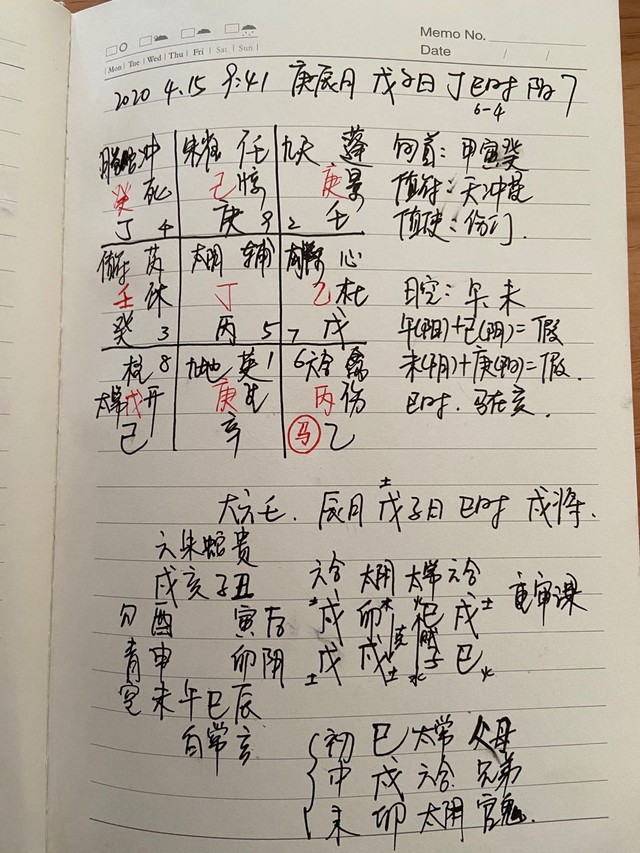 Memo No.
Mon Tue Wed Thu Fri Sat Sun
Date / /
2020 4.15 9:41 庚辰月 戊子日 丁巳时 阳7
6-4
冲 朱雀 任 九天 蓬 旬首:甲寅癸
癸 死 己 惊 庚 景 值符:天冲
丁 4 庚 9 2 壬 值使:伤门
值符 芮 太阴 辅 心 日空:午未
壬 休 丁 乙 杜 午(阳)+己(阴)=假
癸 3 丙 5 7 戊 未(阴)+庚(阳)=假
柱 8 九地 英 1 6 六合 禽 巳时.马在亥.
太常 戊 开 庚 生 丙 伤
己 辛 马 乙
土
大六壬. 辰月 戊子日 巳时 戌将.
六朱蛇贵
戌亥子丑 六合 太阴 太常 六合 重审课
勾 酉 寅后 土 戌 卯 木 火 巳 戌 土
青 申 卯阴 土 戊 戌 土 克 贼 水 子 巳 火
空 未午巳辰
白常玄
初 巳 太常 父母
中 戌 六合 兄弟
末 卯 太阴 官鬼.